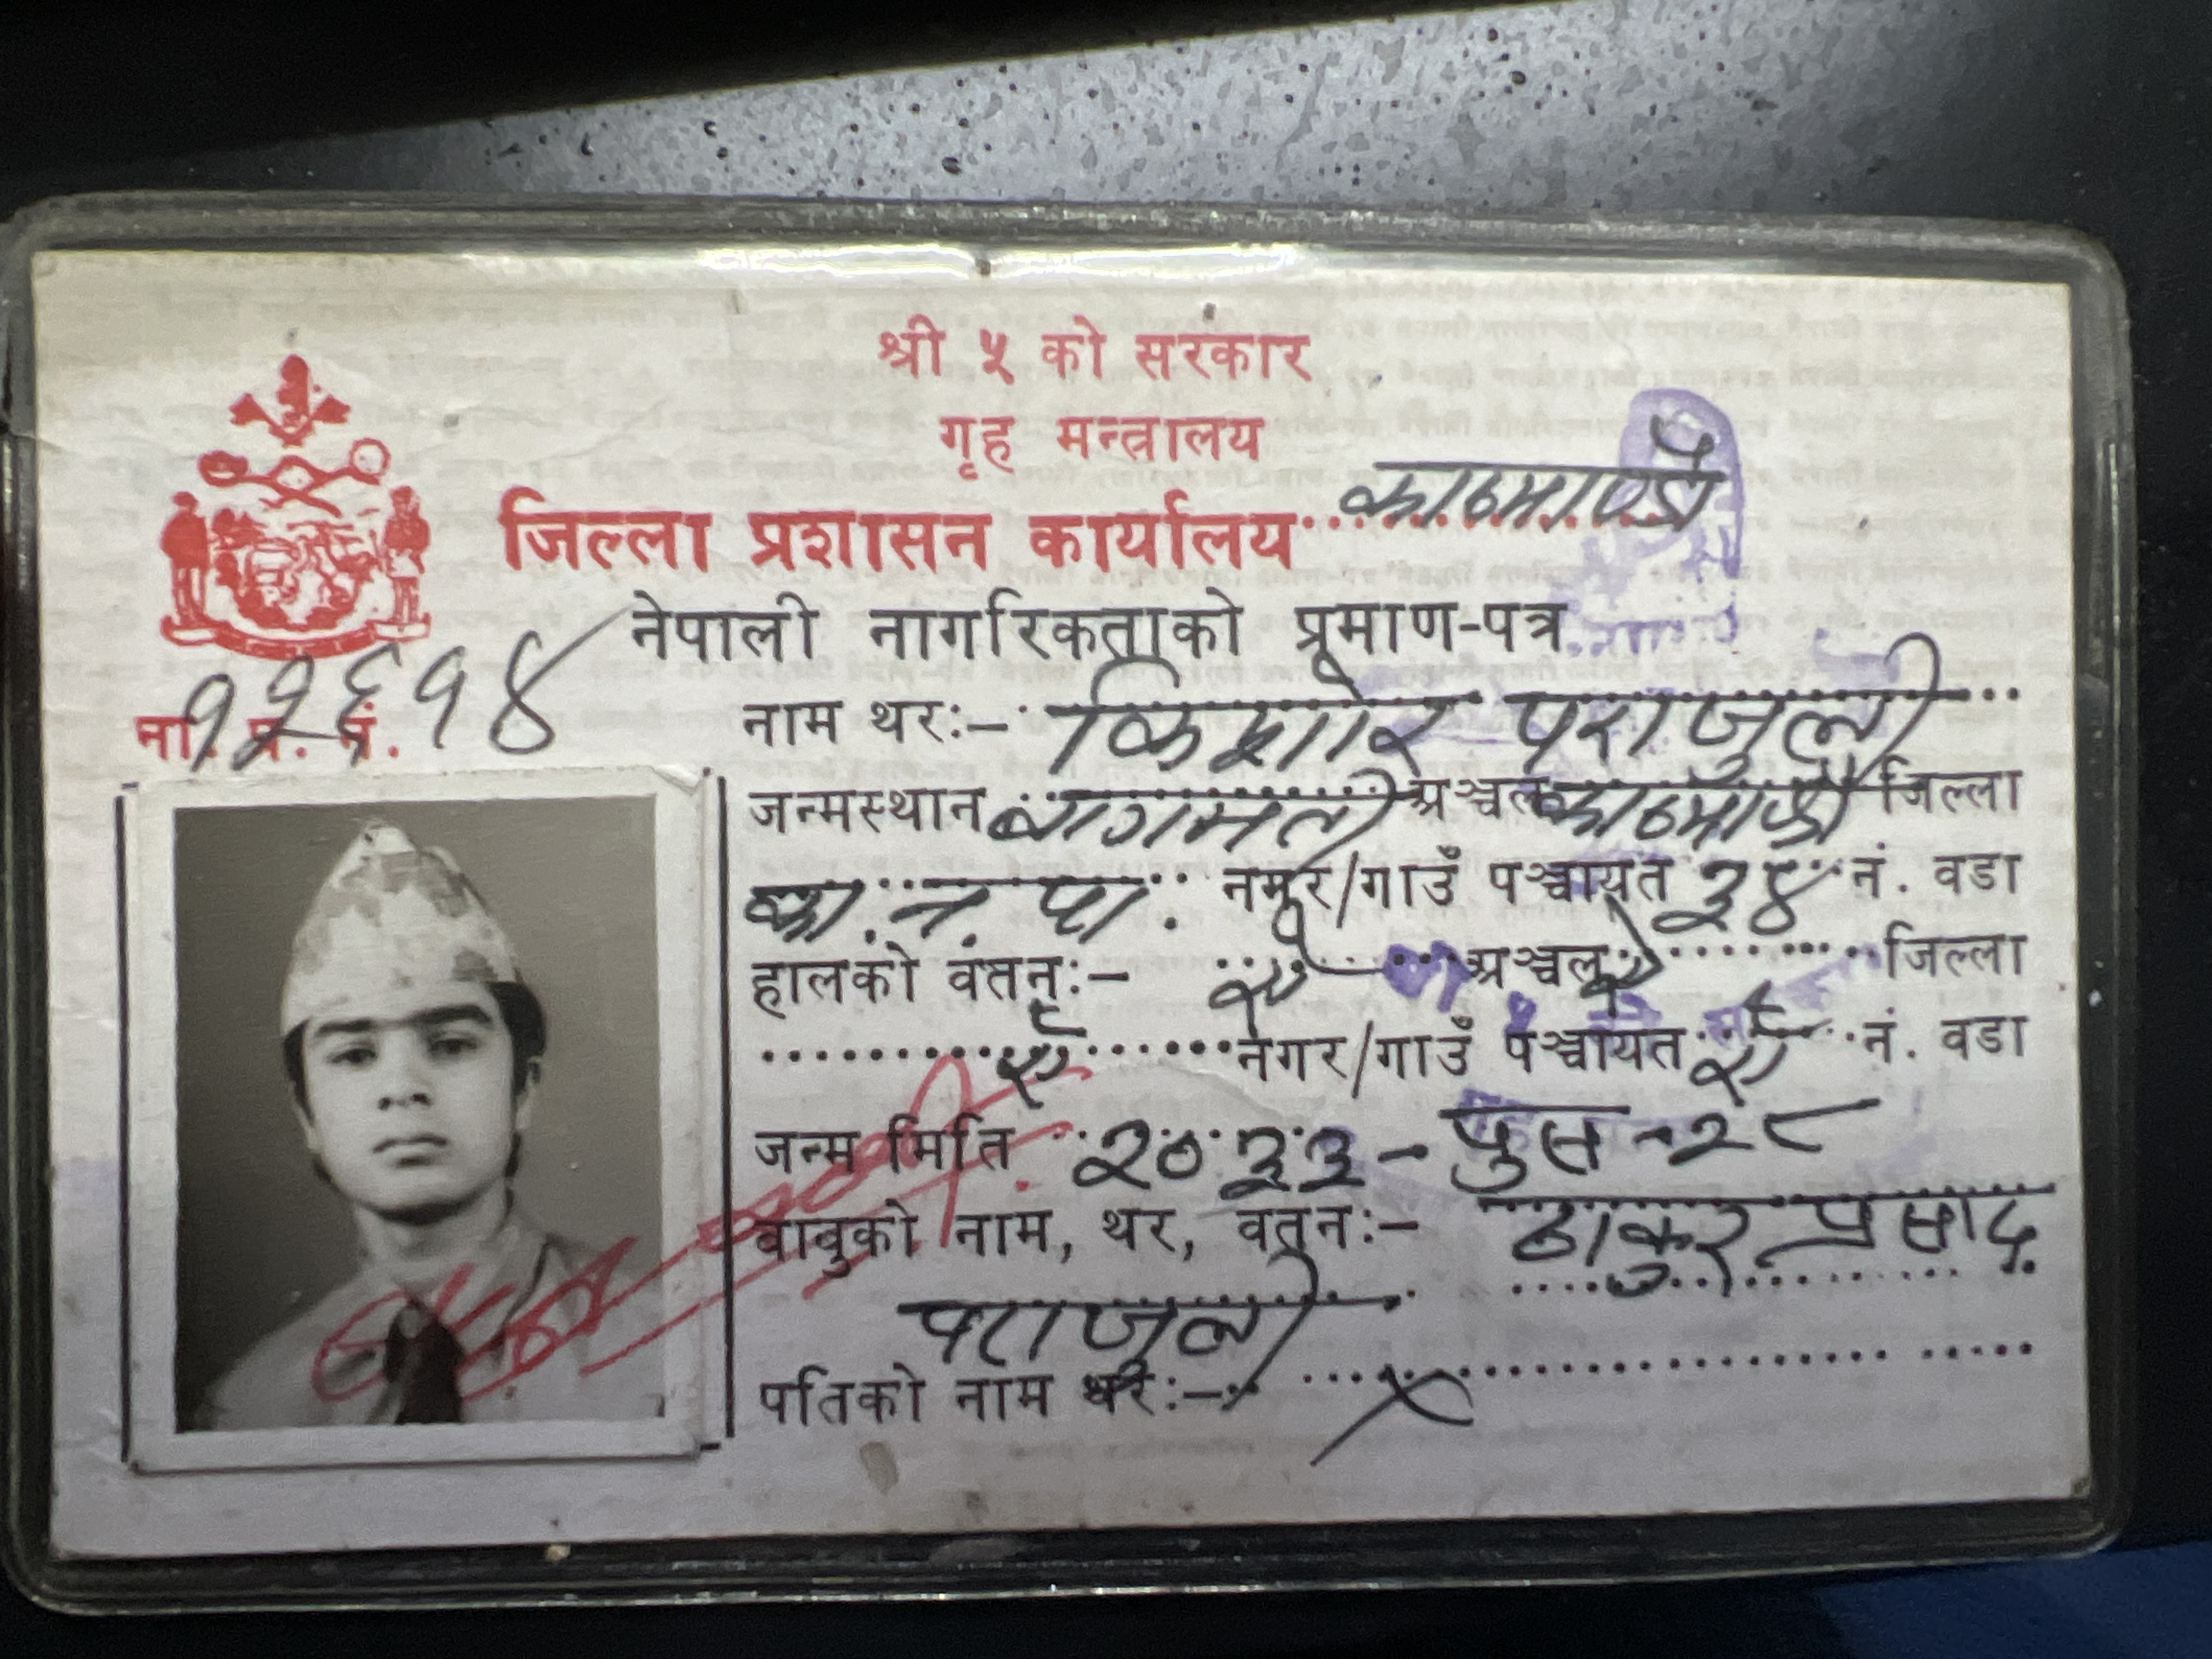 श्री ५ को सरकार
गृह मन्त्रालय
जिल्ला प्रशासन कार्यालय काठमाण्डौ
नेपाली नागरिकताको प्रमाण-पत्र
ना. प्र. नं. १२६१४
नाम थर:- किशोर पराजुली
जन्मस्थान बागमती अञ्चल काठमाण्डौ जिल्ला
का. न. पा. नगर/गाउँ पञ्चायत ३४ नं. वडा
हालको वतन:- ऐ ऐ अञ्चल ऐ ऐ जिल्ला
ऐ ऐ नगर/गाउँ पञ्चायत ऐ ऐ नं. वडा
जन्म मिति २०३३ - पुस - २८
बाबुको नाम, थर, वतन:- ठाकुर प्रसाद
पराजुली
पतिको नाम थर:- ×